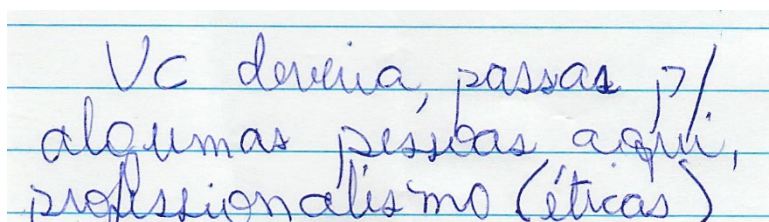 Vc deveria, passar p/
algumas pessoas aqui,
profissionalismo (éticas)